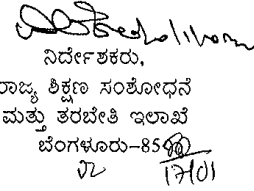 ನಿರ್ದೇಶಕರು,
ರಾಜ್ಯ ಶಿಕ್ಷಣ ಸಂಶೋಧನೆ
ಮತ್ತು ತರಬೇತಿ ಇಲಾಖೆ
ಬೆಂಗಳೂರು-85
17/01